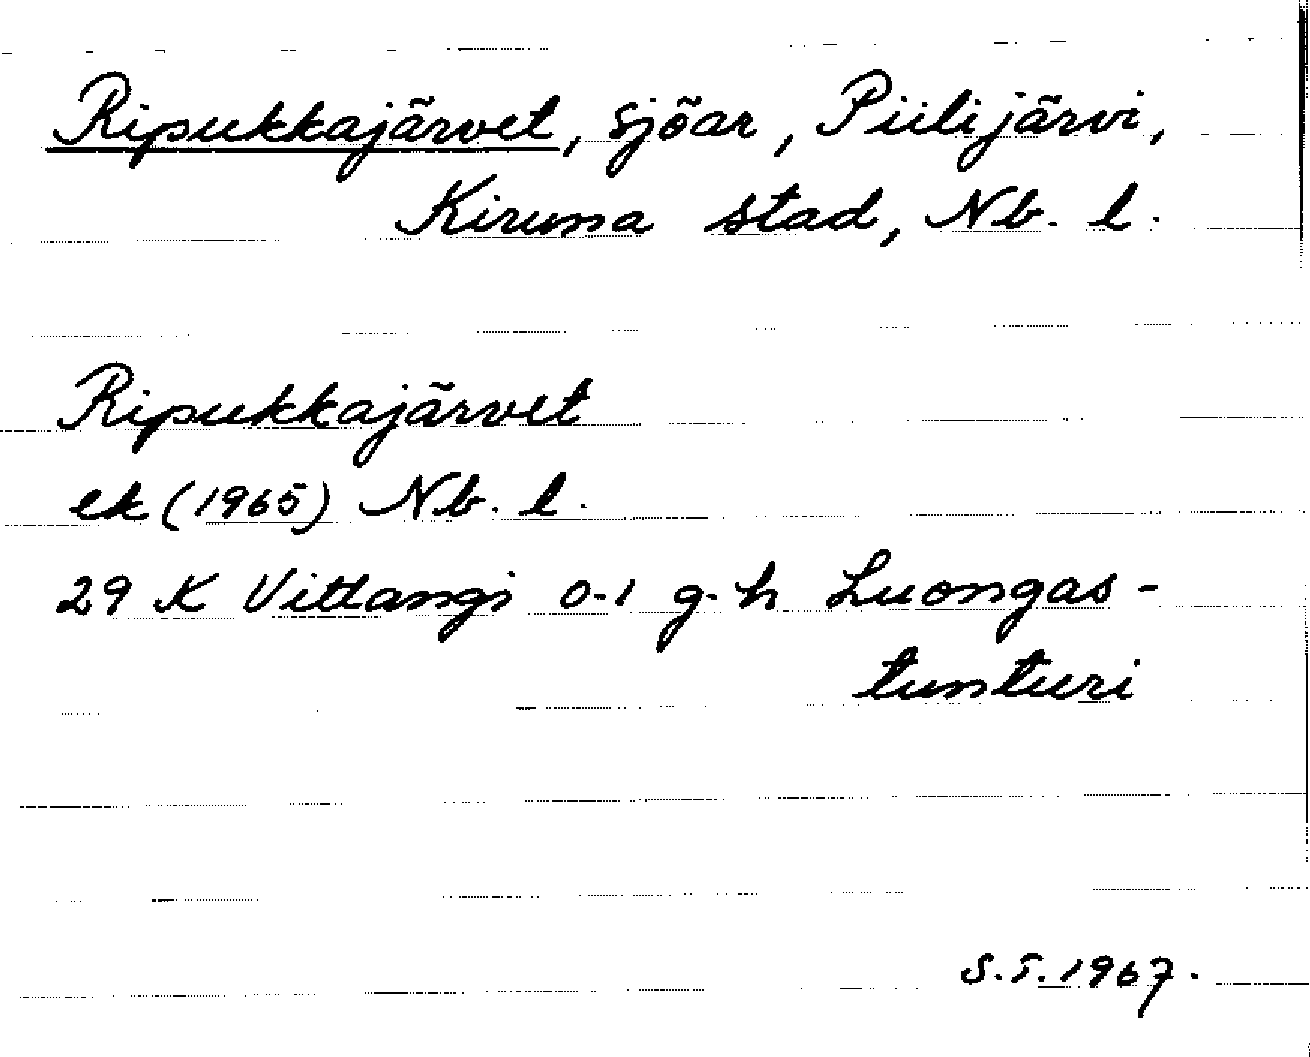 Ripukkajärvet, sjöar, Piilijärvi,
Kiruna stad, Nb. l.
Ripukkajärvet
ek (1965) Nb. l.
29 K Vittangi 0-1 g-h Luongas-
tunturi
S.T. 1967.